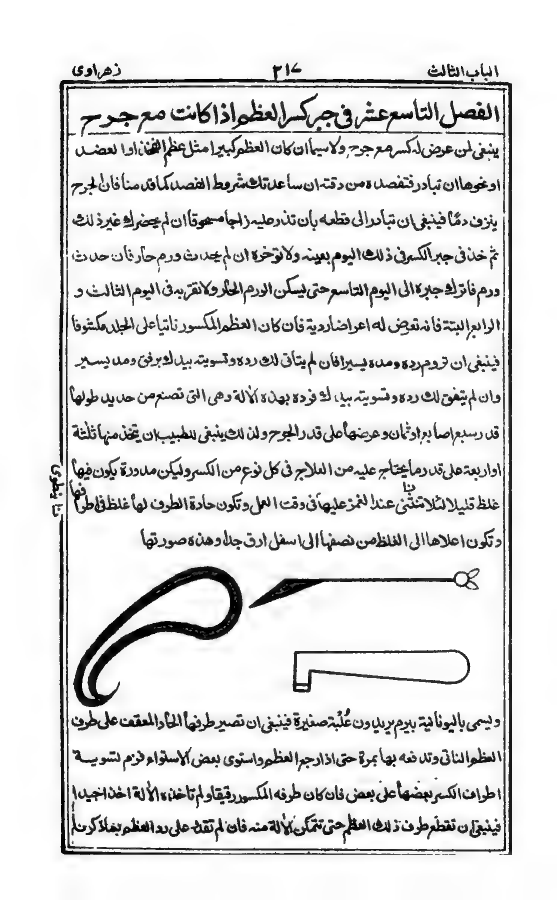 الباب الثالث ٢١٧ زهراوى
الفصل التاسع عشر فى جبر كسر العظم اذا كانت مع جرح
ينبغى لمن عرض له كسر مع جرح ولا سيما ان كان العظم كبيرا مثل عظم الفخذ او العضد
او نحوها ان تبادر فتفصده من وقته ان ساعدتك شروط الفصد كما قدمنا فان الجرح
ينزف دمًا فينبغى ان تبادر الى قطعه بان تذر عليه زاجا مسحوقا ان لم يحضرك غير ذلك
ثم خذ فى جبر الكسر فى ذلك اليوم بعينه ولا تؤخره ان لم يحدث ورم حار فان حدث
ورم فاترك جبره الى اليوم التاسع حتى يسكن الورم الحار ولا تقربه فى اليوم الثالث و
الرابع البتة فانه تعرض له اعراض ردية فان كان العظم المكسور ناتيا على الجلد مكشوفا
فينبغى ان تروم رده ومده يسيرا فان لم يتأتى لك رده وتسويته بيدك برفق ومد يسير
وان لم يتفق لك رده وتسويته بيدك فرده بهذه الالة وهى التى تصنع من حديد طولها
قدر سبع اصابع او ثمان وعرضها على قدر الجرح ولذلك ينبغى للطبيب ان يتخذ منها ثلثة
او اربعة على قدر ما يحتاج عليه من العلاج فى كل نوع من الكسر وليكن مدورة يكون فيها
غلظ قليلا لئلا تنثنى عند الغمز عليها فى وقت العمل وتكون حادة الطرف لها غلظ فى اطرافها
وتكون اعلاها الى الغلظ من نصفها الى اسفل ارق جدا وهذه صورتها
ويسمى باليونانية بيرم يريدون عُتْبة صغيرة فينبغى ان تصير طرفها الحاد المعقف على طرف
العظم الناتى وتدفعه بها بمرة حتى اذا رجع العظم واستوى بعض الاستواء فرم تسويــة
اطراف الكسر بعضها على بعض فان كان طرفه المكسور رقيقا ولم تاخذه الالة اخذا جيدا
فينبغى ان تقطع طرف ذلك العظم حتى تتمكن الالة منه فان لم تقدر على رد العظم بما ذكرنا